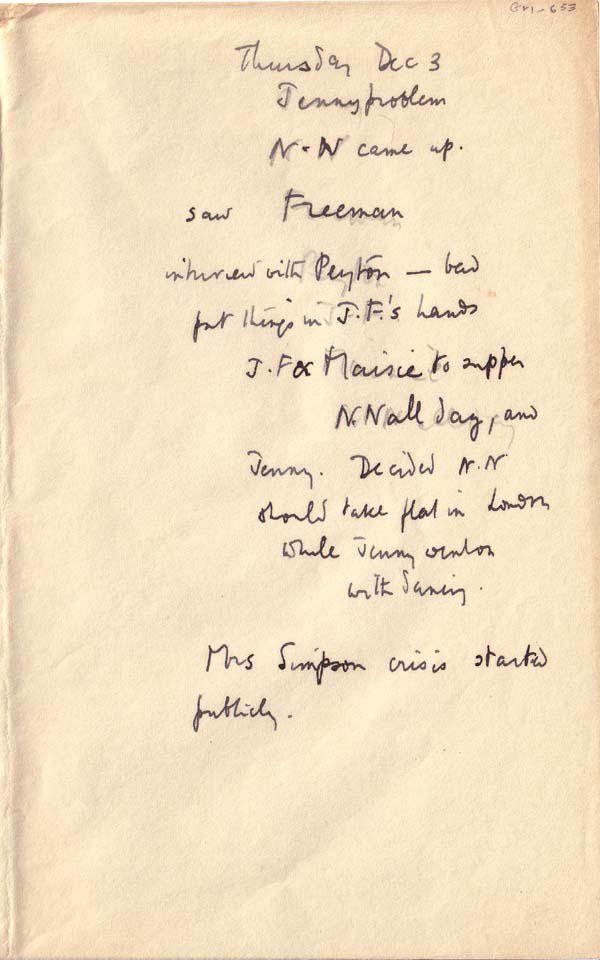 GRI-653
Thursday Dec 3
Jenny problem
N-N came up.
saw Freeman
interview with Peyton — bad
put things in J.F.'s hands
J.F & Maisie to supper
N.N all day, and
Jenny. Decided N.N
should take flat in London
while Jenny went on
with dancing.
Mrs Simpson crisis started
publicly.